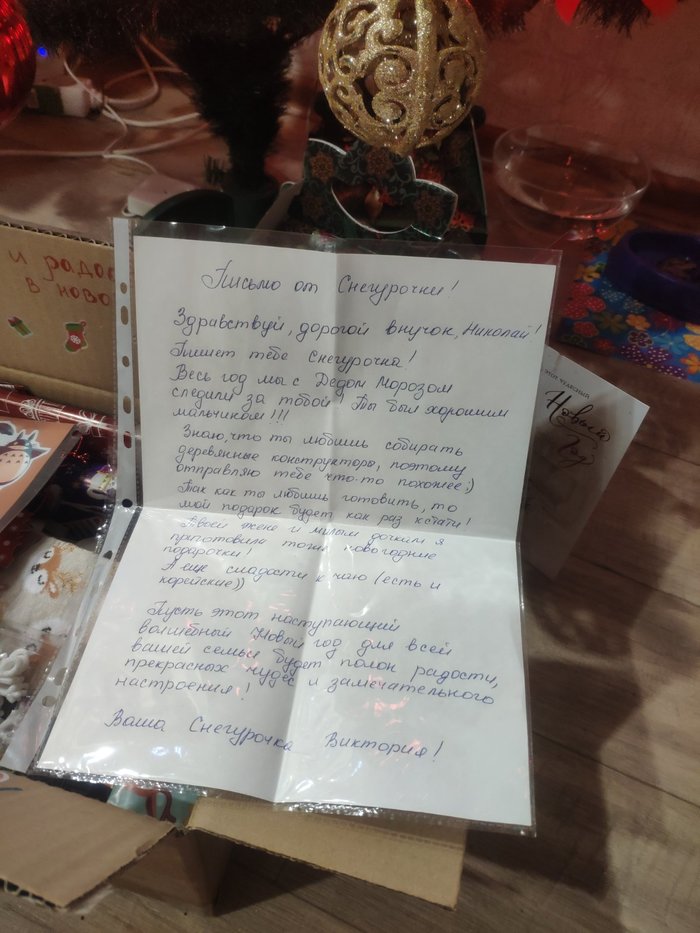 и радос
в ново
Письмо от Снегурочки!
Здравствуй, дорогой внучок, Николай!
Пишет тебе Снегурочка!
Весь год мы с Дедом Морозом
следили за тобой! Ты был хорошим
мальчиком!!!
Знаю, что ты любишь собирать
деревянные конструкторы, поэтому
отправляю тебе что-то похожее:)
Так как ты любишь готовить, то
мой подарок будет как раз кстати!
Твоей жене и милым дочкам я
приготовила тоже новогодние
подарочки!
А еще сладости к чаю (есть и
корейские))
Пусть этот наступающий
волшебный Новый год для всей
вашей семьи будет полон радости,
прекрасных чудес и замечательного
настроения!
Ваша Снегурочка Виктория!
Новый
Год